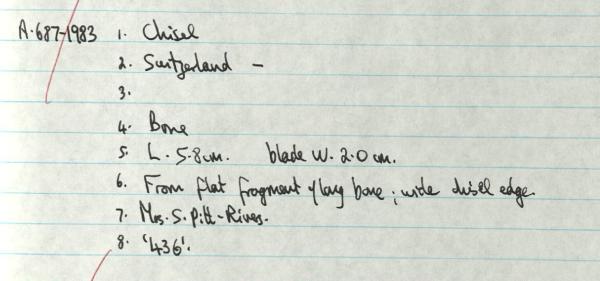 A.687-1983 1. Chisel
2. Switzerland –
3.
4. Bone
5. L. 5.8cm. blade W. 2.0 cm.
6. From flat fragment of long bone; wide chisel edge.
7. Mrs. S. Pitt-Rivers.
8. '436'.